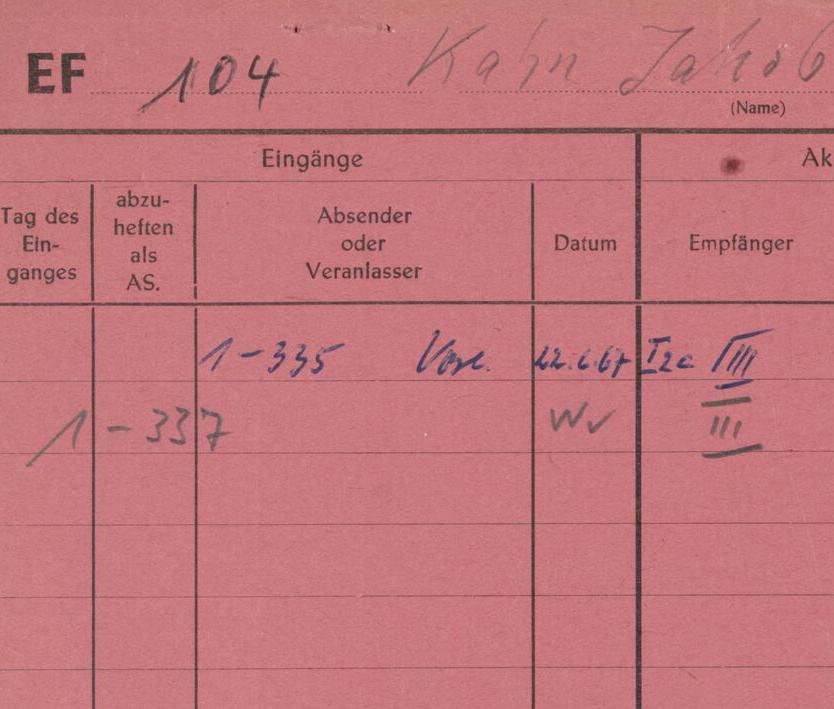 EF 104 Kahn Jakob
(Name)
Eingänge Ak
Tag des Ein-ganges
abzu-heften als AS.
Absender oder Veranlasser
Datum
Empfänger
1-335 22.6.67 I2c III
1-337 Wv III